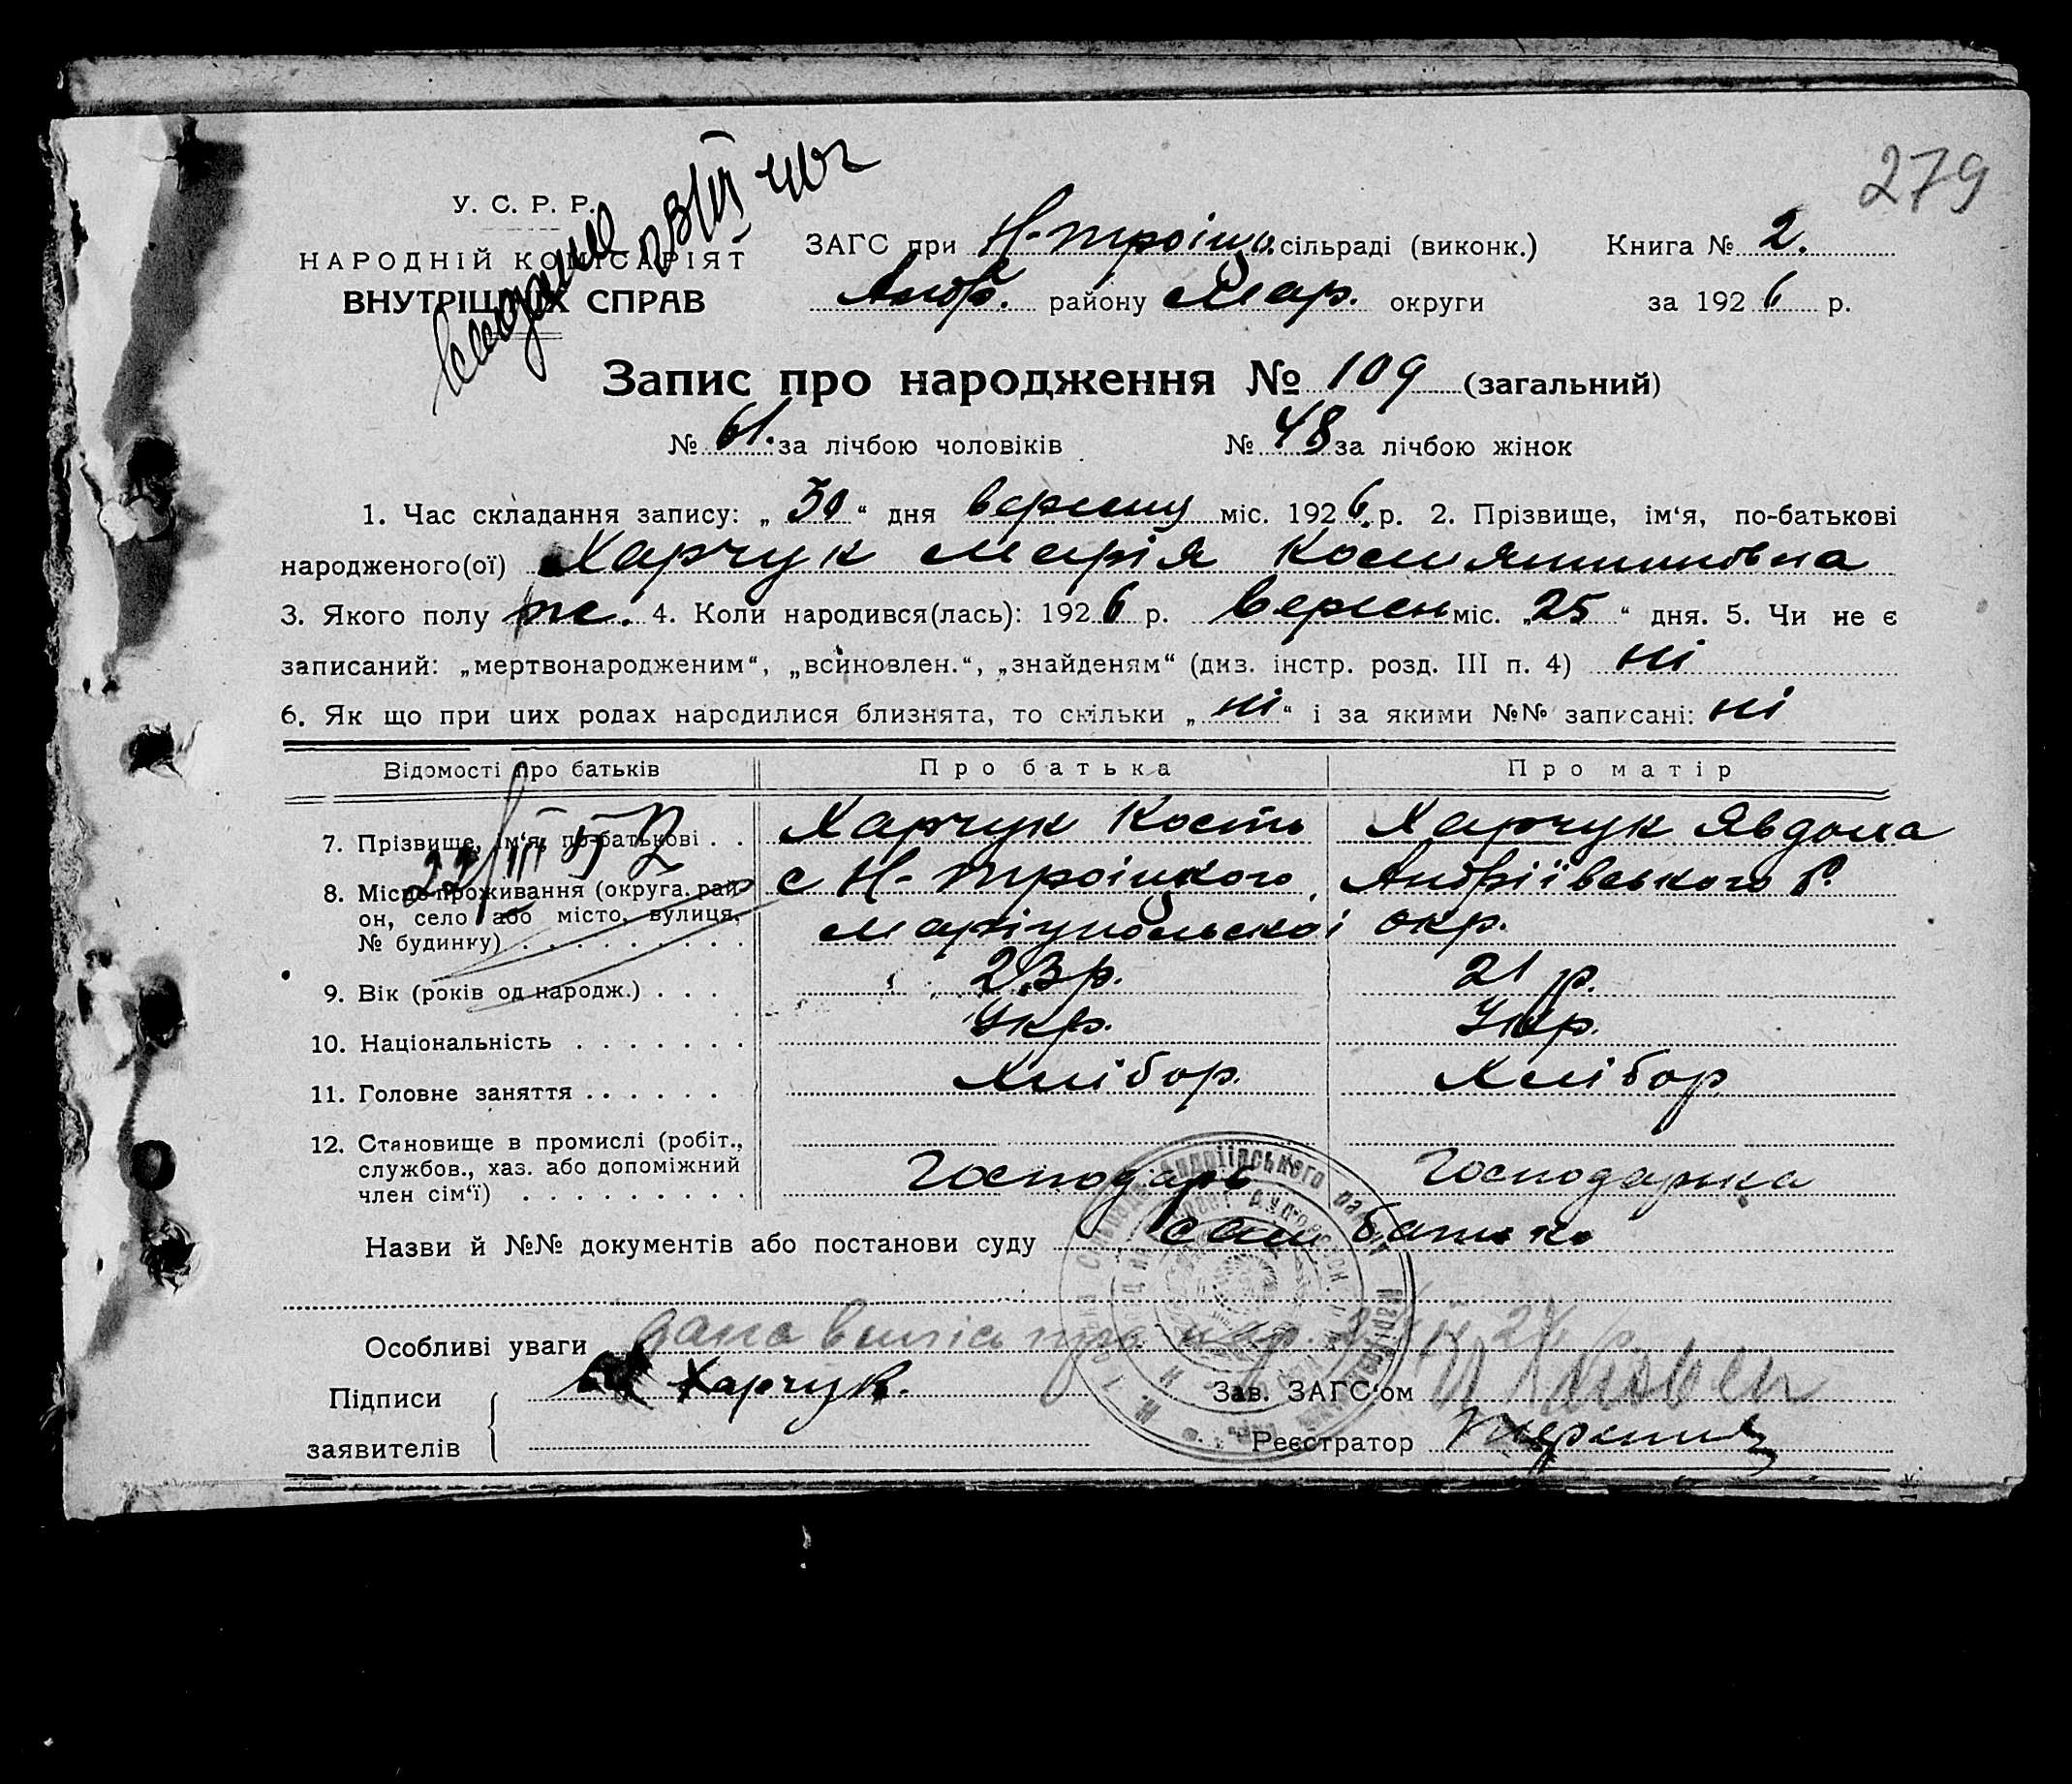 279
У. С. Р. Р.
НАРОДНІЙ КОМІСАРІЯТ
ВНУТРІШНІХ СПРАВ
ЗАГС при Н-Троіцк. сільраді (виконк.) Книга № 2.
Андр. району Мар. округи за 1926 р.
Запис про народження № 109 (загальний)
№ 61. за лічбою чоловіків № 48 за лічбою жінок
1. Час складання запису: „ 30 “ дня вересня міс. 1926 р. 2. Прізвище, ім‘я, по-батькові
народженого(ої) Харчук Марія Костянтиновна
3. Якого полу ж. 4. Коли народився(лась): 1926 р. Вересн міс. „25“ дня. 5. Чи не є
записаний: „мертвонародженим“, „всиновлен.“, „знайденям“ (див. інстр. розд. III п. 4) ні
6. Як що при цих родах народилися близнята, то скільки „ ні “ і за якими №№ записані: ні
Відомості про батьків Про батька Про матір
7. Прізвище, ім‘я, по-батькові . . Харчук Кость Харчук Явдоха
8. Місце проживання (округа, рай- с Н-Троіцкого, Андріївського р.
он, село або місто, вулиця,
№ будинку) . . . . . . . . . Маріупольскоі окр.
9. Вік (років од народж.) . . . 23 р. 21 р.
10. Національність . . . . . . . Укр. Укр.
11. Головне заняття . . . . . . Хлібор. Хлібор
12. Становище в промислі (робіт.,
службов., хаз. або допоміжний
член сім‘ї) . . . . . . . . . Господарь Господарка
Назви й №№ документів або постанови суду сам батько
Особливі уваги дана випись про нар.
Підписи Харчук. Зав. ЗАГС‘ом
заявителів Реєстратор